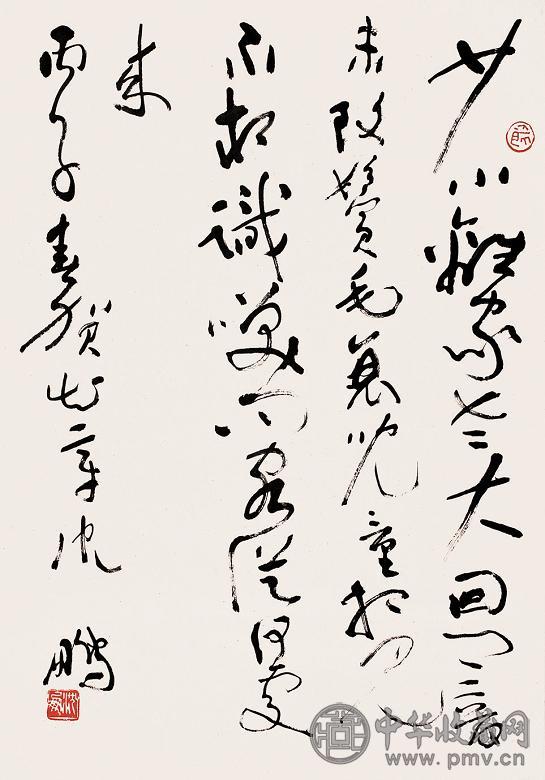 少小離家老大回鄉音
未改鬢毛衰兒童相見
不相識笑問客從何處
來
丙子春賀知章沈鵬
中华收藏网
www.pmv.cn